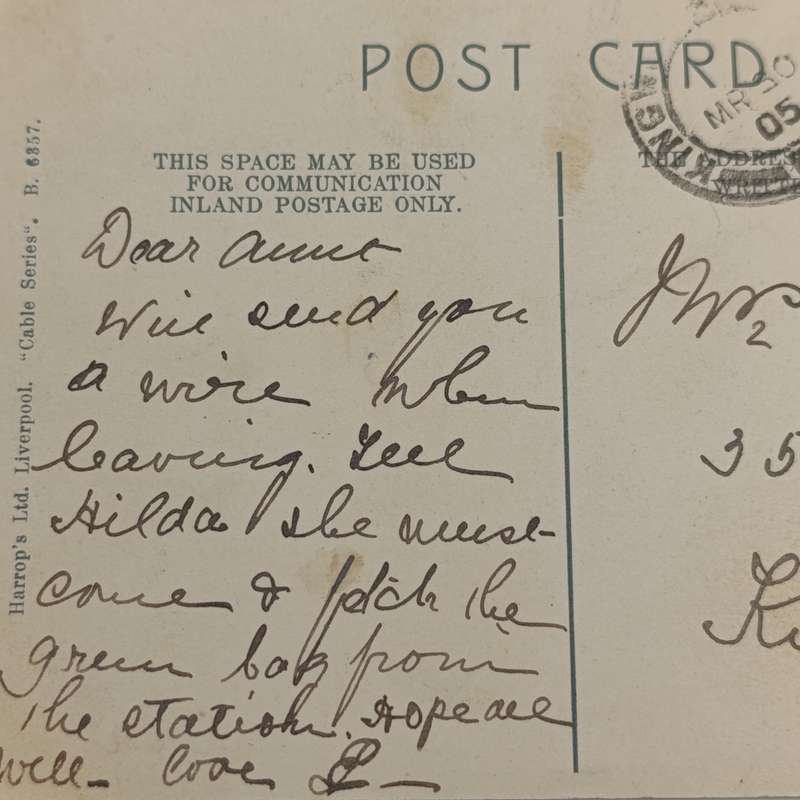 POST CARD
MR 30
05
KING
THIS SPACE MAY BE USED
FOR COMMUNICATION
INLAND POSTAGE ONLY.
THE ADDRES
WRITTE
Harrop's Ltd. Liverpool. "Cable Series". B. 6357.
Dear Aunt
Will send you
a wire when
leaving. Tell
Hilda she must
come & fetch the
green bag from
the station. Hope all
well - love
35